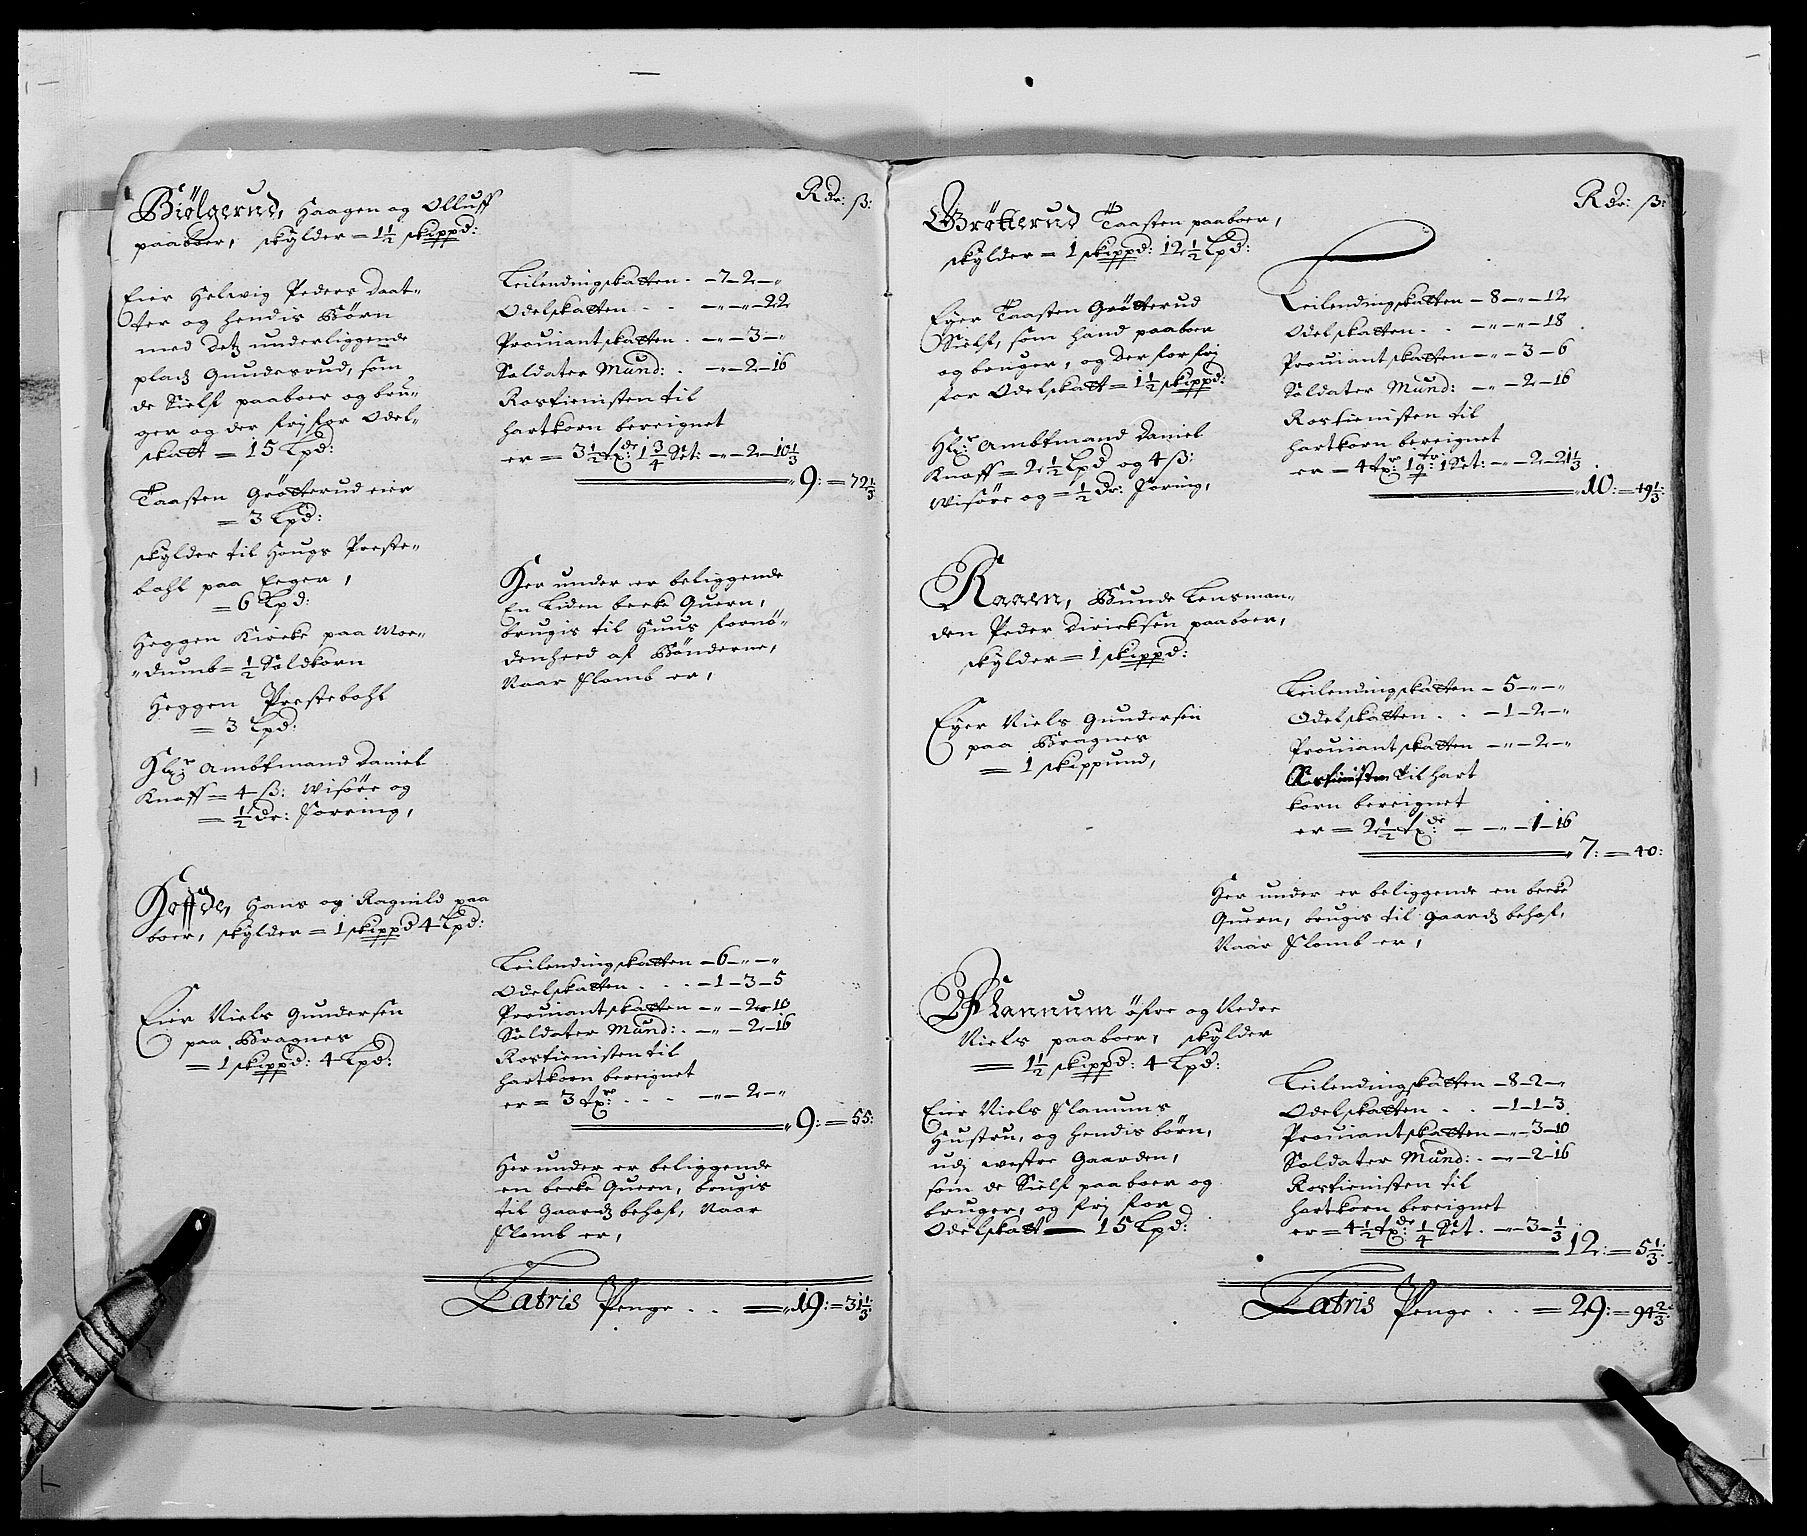 Rdr: ß:
Biølgerud, Haagen og Olluff
paaboer, skylder = 1½ skippd:
Eier Helwig Peders daat-
ter og hendis Børn
med detz underliggende
pladz Gundesrud, som
de Sielf paaboer og bru-
ger og der frj for Odel-
skatt = 15 Lpd:
Taasten Grøtterud eier
= 3 Lpd:
skylder til Hougs Preste-
bohl paa Eeger,
= 6 Lpd:
Heggen Kircke paa Moe-
dumb = ½ Søldkorn
Heggen Prestebohl
= 3 Lpd:
Hr: Ambtmand Daniel
Knoff = 4 ß: Wisøre og
= ½ dr: Foering,
Leilendingskatten . — 7 — 2 — "
Odelskatten . . — " — " — 22
Prouiantskatten . — " — 3 — "
Soldater Mund: . — " — 2 — 16
Rostienisten til
hartkorn bereignet
er = 3½ tx:de 1¾ Set: — " — 2 — 10⅓
9: = 72⅓
Her under er beliggende
En Liden becke Quern,
brugis til Huus fornø-
denhed af Bønderne,
Naar flomb er,
Hoffde, Hans og Ragnild paa
boer, skylder = 1 skippd 4 Lpd:
Eier Niels Gundersen
paa Bragnes
= 1 skippd: 4 Lpd:
Leilendingskatten — 6 — " — "
Odelskatten . . . — 1 — 3 — 5
Prouiantskatten — " — 2 — 10
Soldater Mund: . — " — 2 — 16
Rostienisten til
hartkorn bereignet
er = 3 tx:r . . . — " — 2 — "
9: = 55:
Her under er beliggende
en becke Quern, brugis
til Gaardz behof, Naar
flomb er,
Latris Penge . . = 19: = 31⅓
Rdr: ß:
Grøtterud Taasten paaboer,
skylder = 1 skippd: 12½ Lpd:
Eyer Taasten Grøtterud
Sielf, som hand paaboer
og bruger, og der for frj
for Odelskatt = 1½ skippd:
Hr: Ambtmand Daniel
Knoff = 2½ Lpd og 4 ß:
Wisøre og = ½ dr: Foring,
Leilendingskatten — 8 — " — 12
Odelskatten . . — " — " — 18
Prouiantskatten — " — 3 — 6
Soldater Mund: — " — 2 — 16
Rostienisten til
hartkorn bereignet
er = 4 tx:r 1 q:tr 1 Set: — " — 2 — 21⅓
10: = 49⅓:
Raaen, Bunde Lensman-
den Peder Diricksen paaboer,
skylder = 1 skippd:
Eyer Niels Gundersen
paa Bragnes
= 1 skippund,
Leilendingskatten — 5 — " — "
Odelskatten . . — 1 — 2 — "
Prouiantskatten — " — 2 — "
Rostienisten til hart
korn bereignet
er = 2½ tx:de — — " — 1 — 16
7: = 40:
Her under er beliggende en becke
Quern, brugis til Gaardz behof,
Naar flomb er,
Flannum øfre og Nedre
Niels paaboer, skylder
= 1½ skippd: 4 Lpd:
Eier Niels Flanums
Hustru, og hendis børn,
udj westre Gaarden,
som de Sielf paaboer og
bruger, og frj for
Odelskatt — 15 Lpd:
Leilendingskatten — 8 — 2 — "
Odelskatten . . — 1 — 1 — 3
Prouiantskatten — " — 3 — 10
Soldater Mund: . — " — 2 — 16
Rostienisten til
hartkorn bereignet
er = 4½ tx:de ¼ Set . — " — 3 — ⅓
12: = 5⅓:
Latris Penge . . = 29: = 94⅔: